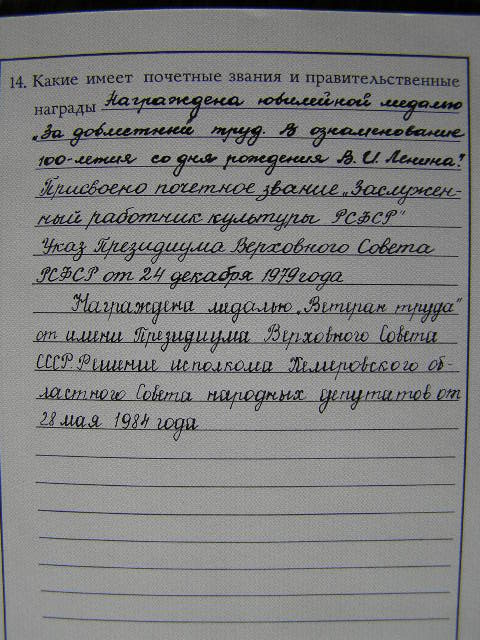 14. Какие имеет почетные звания и правительственные
награды Награждена юбилейной медалью
„За доблестный труд. В ознаменование
100-летия со дня рождения В. И. Ленина."
Присвоено почетное звание „Заслужен-
ный работник культуры РСФСР"
Указ Президиума Верховного Совета
РСФСР от 24 декабря 1979 года
Награждена медалью „Ветеран труда"
от имени Президиума Верховного Совета
СССР. Решение исполкома Кемеровского об-
ластного Совета народных депутатов от
28 мая 1984 года